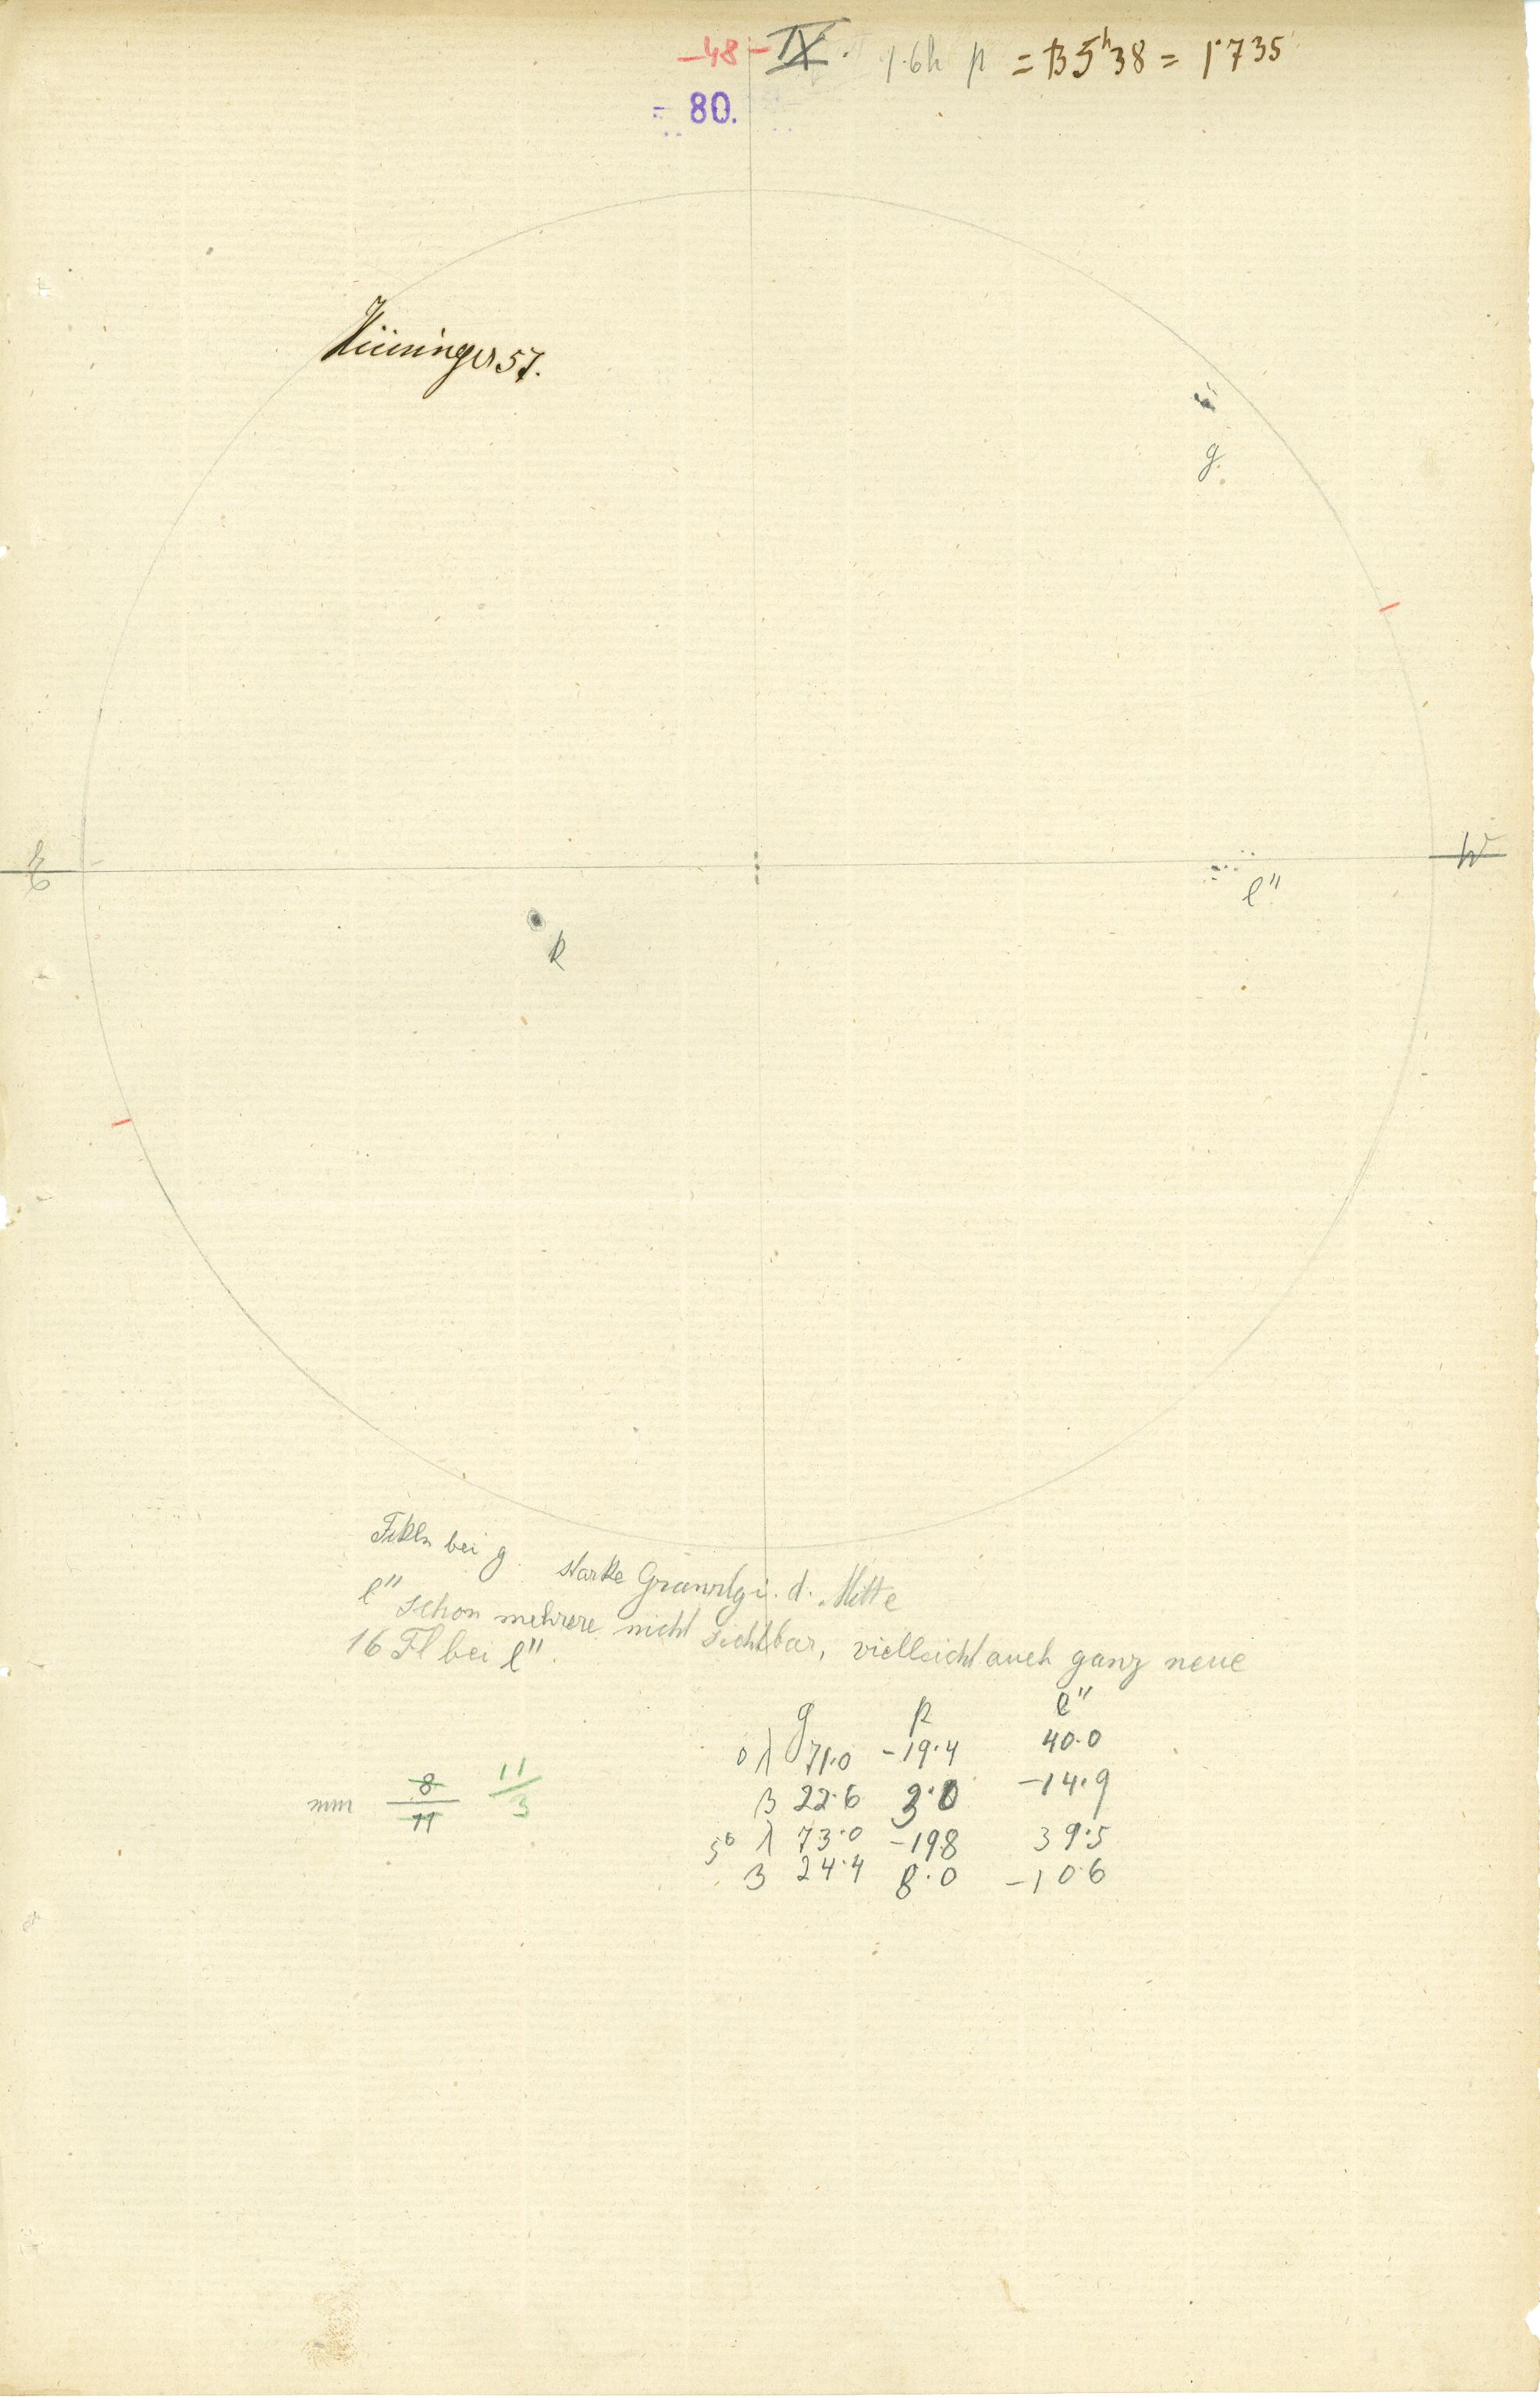 -48- IX. 1.6h p = 135ʰ38 = 1·735
= 80.
57.
g
E
W
l"
k
Fkln bei g. starke Granulg i. d. Mitte
l" schon mehrere nicht sichtbar, vielleicht auch ganz neue
16 Fl bei l".
g k l"
0 λ 71.0 -19.4 40.0
β 22.6 3.0 -14.9
λ 73.0 -19.8 39.5
β 24.4 8.0 -10.6
mm 8/11 11/3